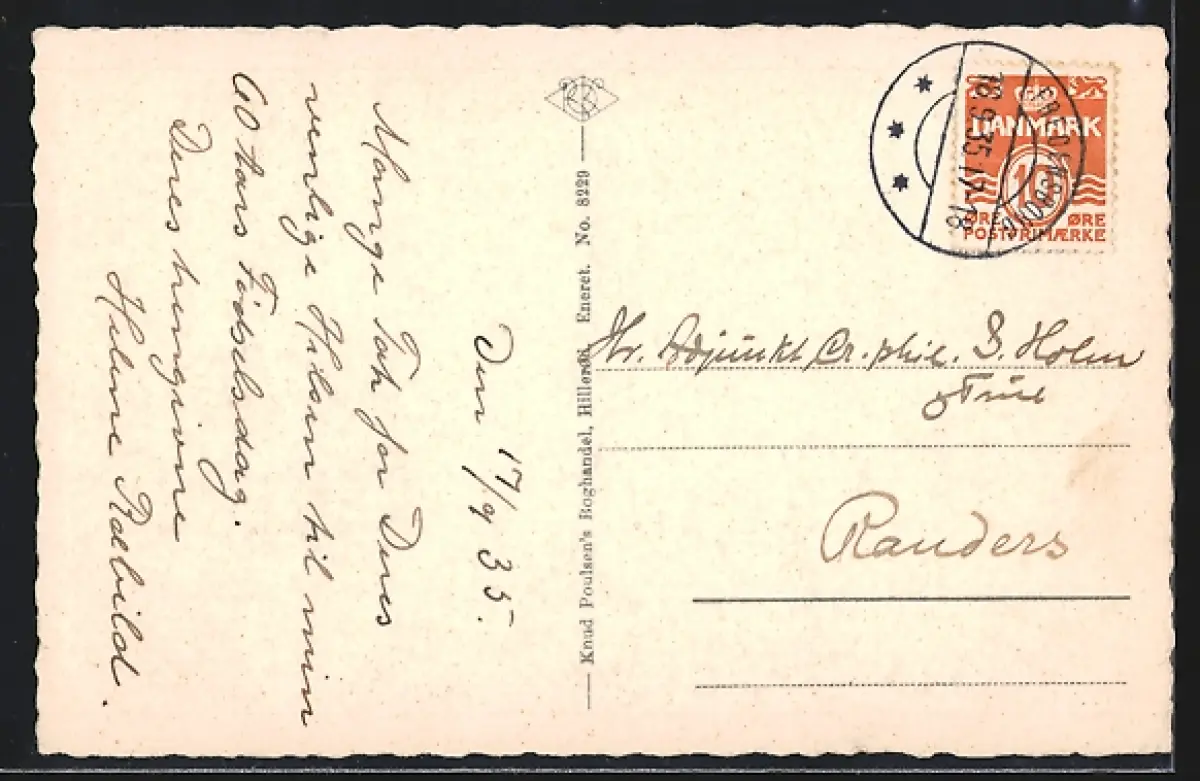 Den 17/9 35.
Mange Tak for Deres
venlige Hilsen til min
60 Aars Fødselsdag.
Deres hengivne
Helene Raebild.
Knud Poulsen's Boghandel, Hillerød. Eneret. No. 8229
18.9.35.17-18
FREDENSBORG
DANMARK
10
ØRE ØRE
POSTFRIMÆRKE
Hr. Adjunkt Cr. phil. S. Holm
& Frue
Randers